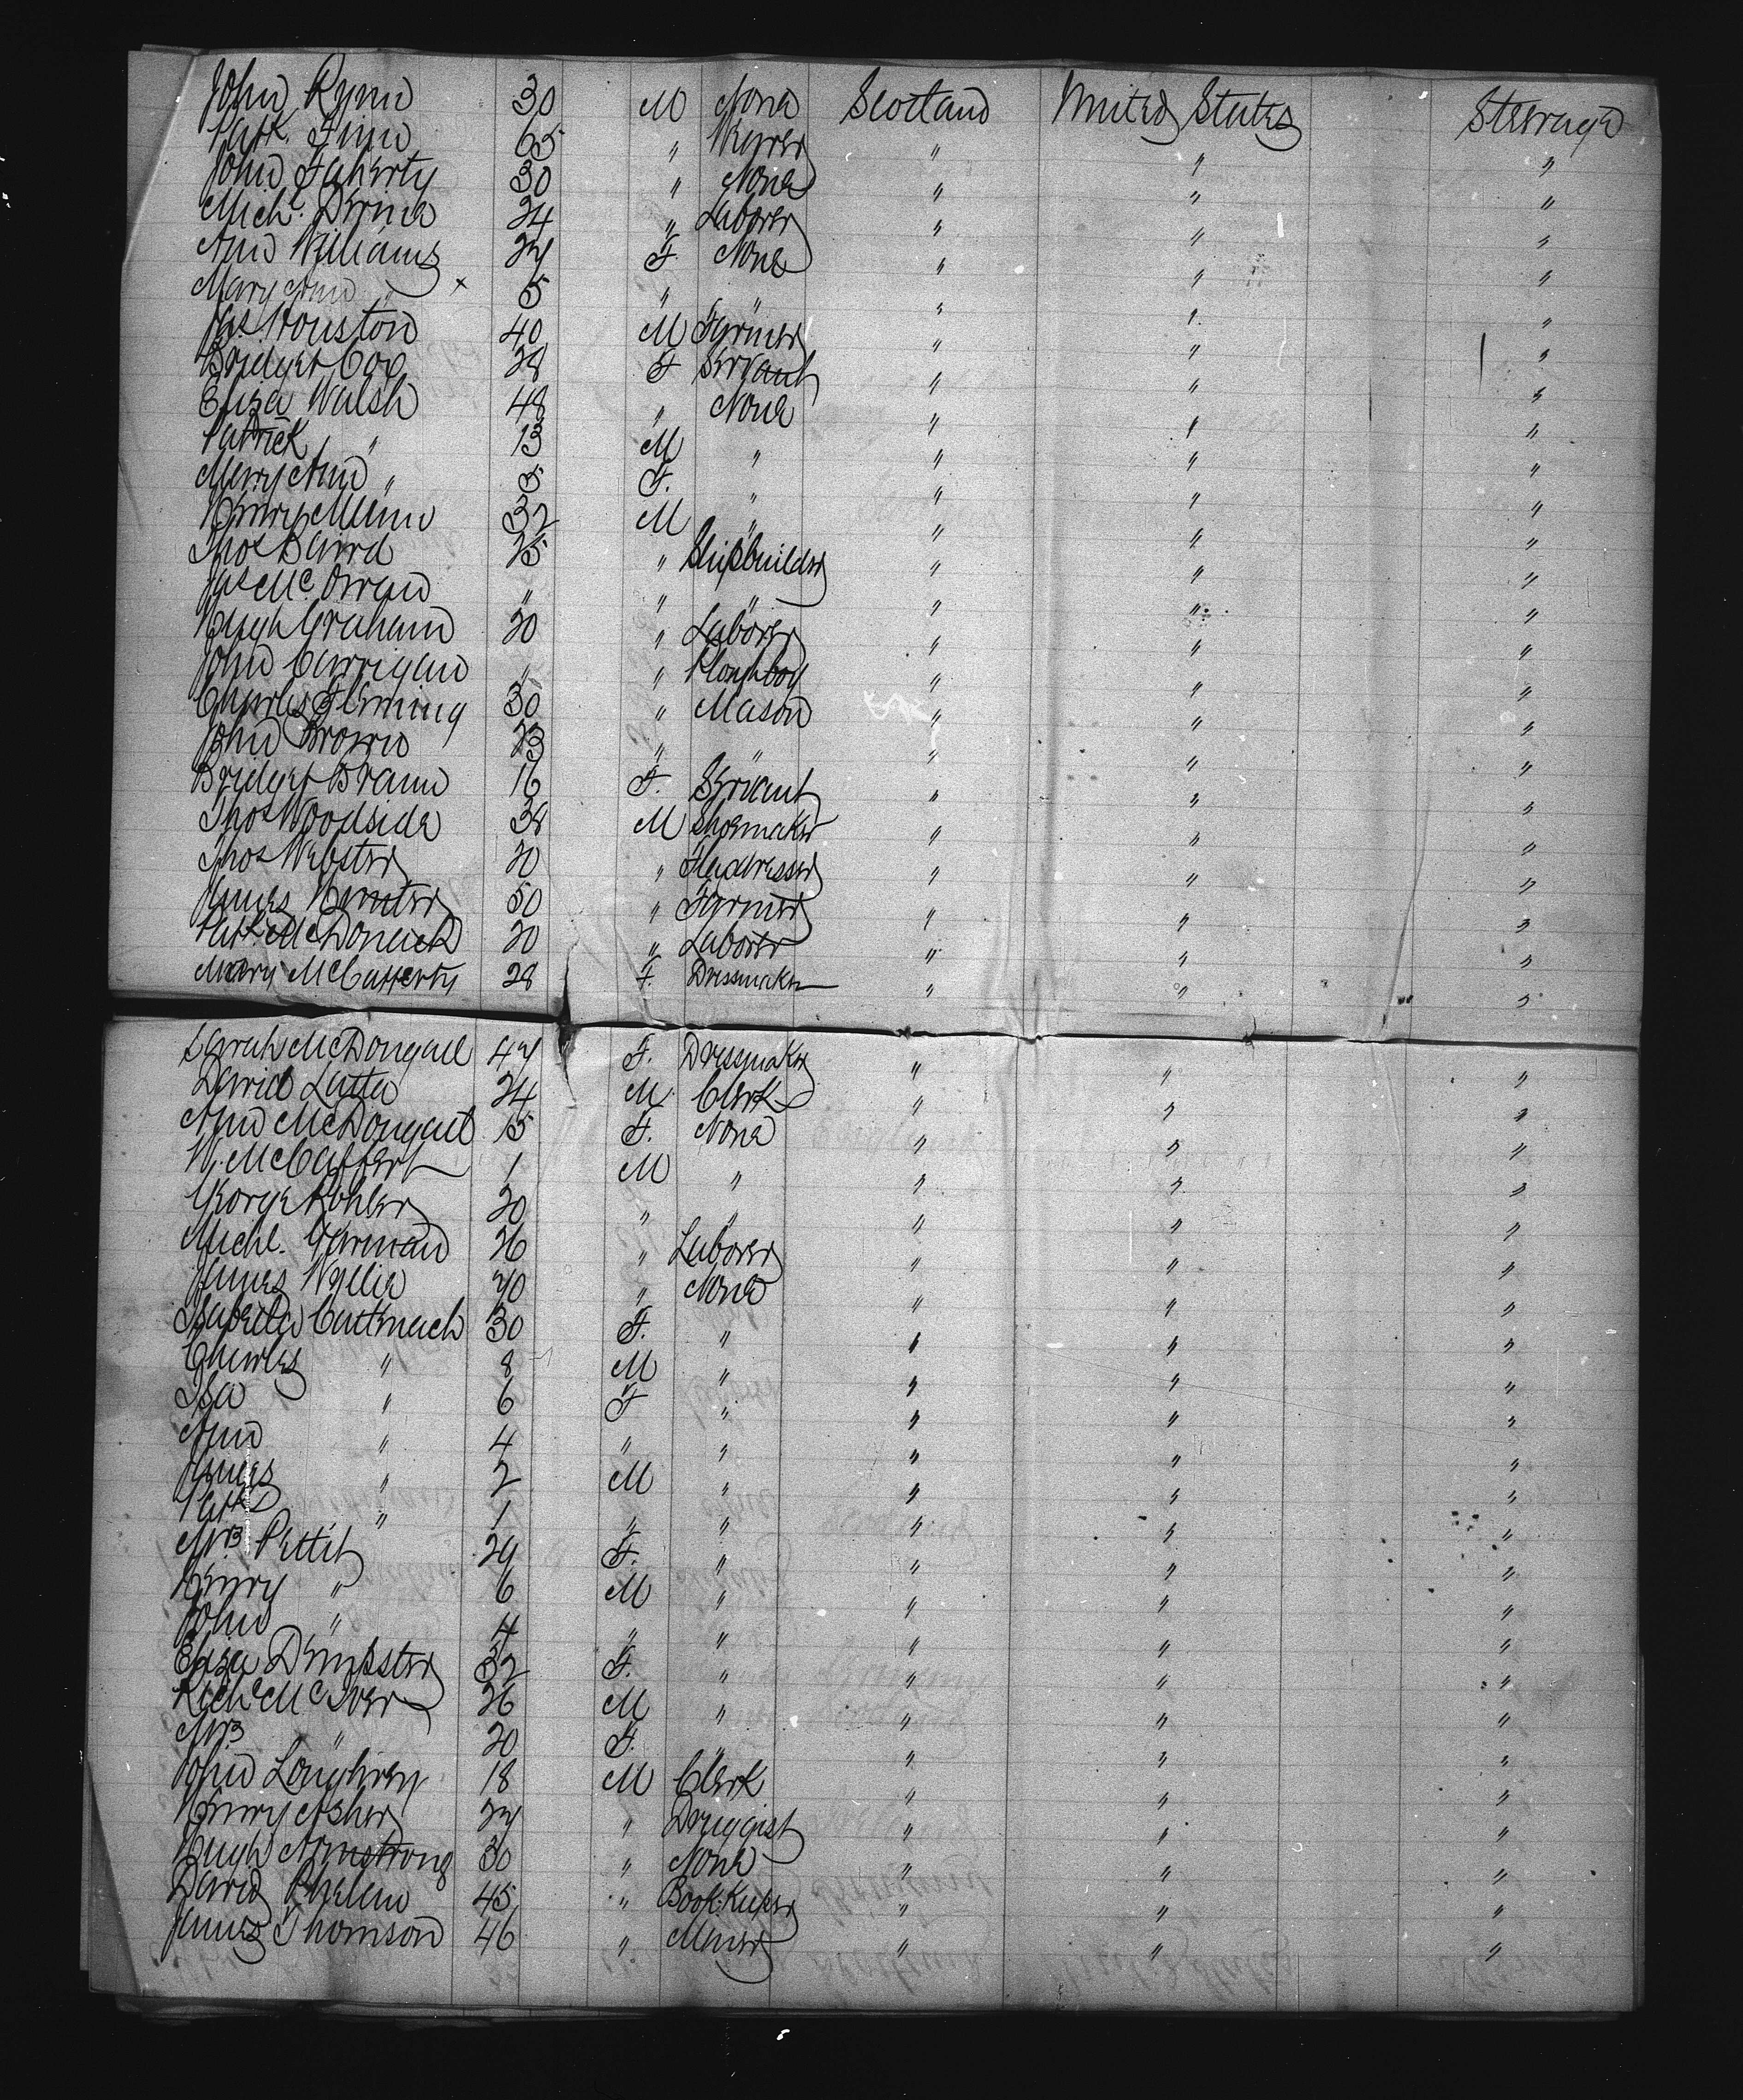 John Rynn 30 M None Scotland United States Steerage
Patk. Finn 65 " Weaver " " "
John Faherty 30 " None " " "
Michl. Devine 24 " Laborer " " "
Ann Williams 27 F None " " "
Mary Ann " x 5 " " " " "
Jas Houston 40 M Farmer " " "
Bridget Cox 28 F Servant " " "
Eliza Walsh 48 " None " " "
Patrick " 13 M " " " "
Mary Ann " 5 F. " " " "
Henry Munn 32 M " " " "
Thos Baird 25 " Shipbuilder " " "
Jas Mc Owan " " " " " "
Hugh Graham 20 " Laborer " " "
John Carrigan " " Ploughboy " " "
Charles Fleming 30 " Mason " " "
John Brown 23 " " " " "
Bridget Brann 16 F. Servant " " "
Thos Woodside 38 M Shoemaker " " "
Thos Webster 20 " Flaxdresser " " "
James Hunter 50 " Farmer " " "
Patk. McDonack 20 " Laborer " " "
Mary McCafferty 28 F. Dressmaker " " "
Sarah McDongall 47 F. Dressmaker " " "
David Latta 24 M. Clerk " " "
Ann McDongall 15 F. None " " "
W. McCaffert 1 M " " " "
George Kohler 20 " " " " "
Michl. Garman 26 " Laborer " " "
James Wyllie 70 " None " " "
Isabella Cattenach 30 F. " " " "
Charles " 8 M " " " "
Isa " 6 F " " " "
Ann " 4 " " " " "
James " 2 M " " " "
Patk " 1 " " " " "
Mrs Pettit 29 F. " " " "
Henry " 6 M " " " "
John " 4 " " " " "
Eliza Dempster 32 F. " " " "
Richd McIver 26 M " " " "
Mrs " 20 F. " " " "
John Loughrey 18 M Clerk " " "
Henry Asher 27 " Druggist " " "
Hugh Armstrong 30 " None " " "
David Phelan 45 " Book-Keeper " " "
James Thomson 46 " Miner " " "